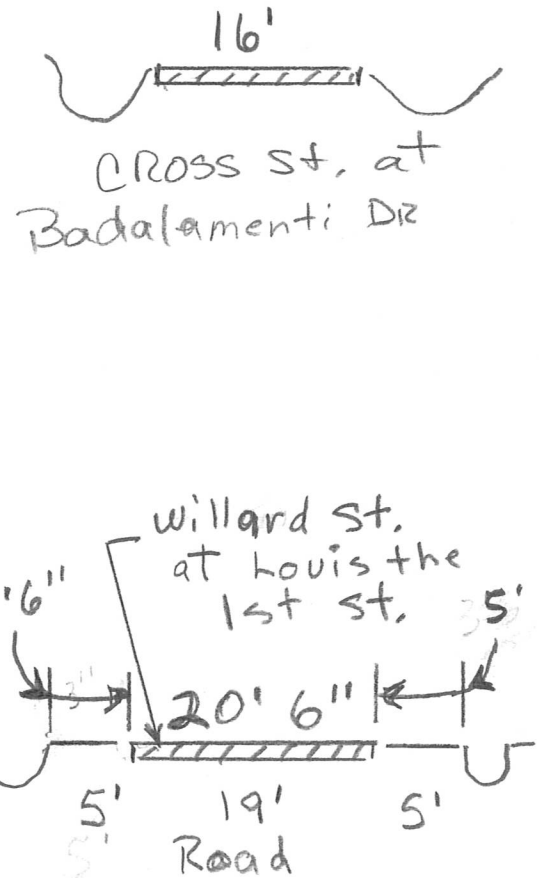 16'
CROSS St. at
Badalamenti DR
Willard St.
at Louis the
1st St.
'6"
5'
3"
20' 6"
5'
19'
5'
5'
Road